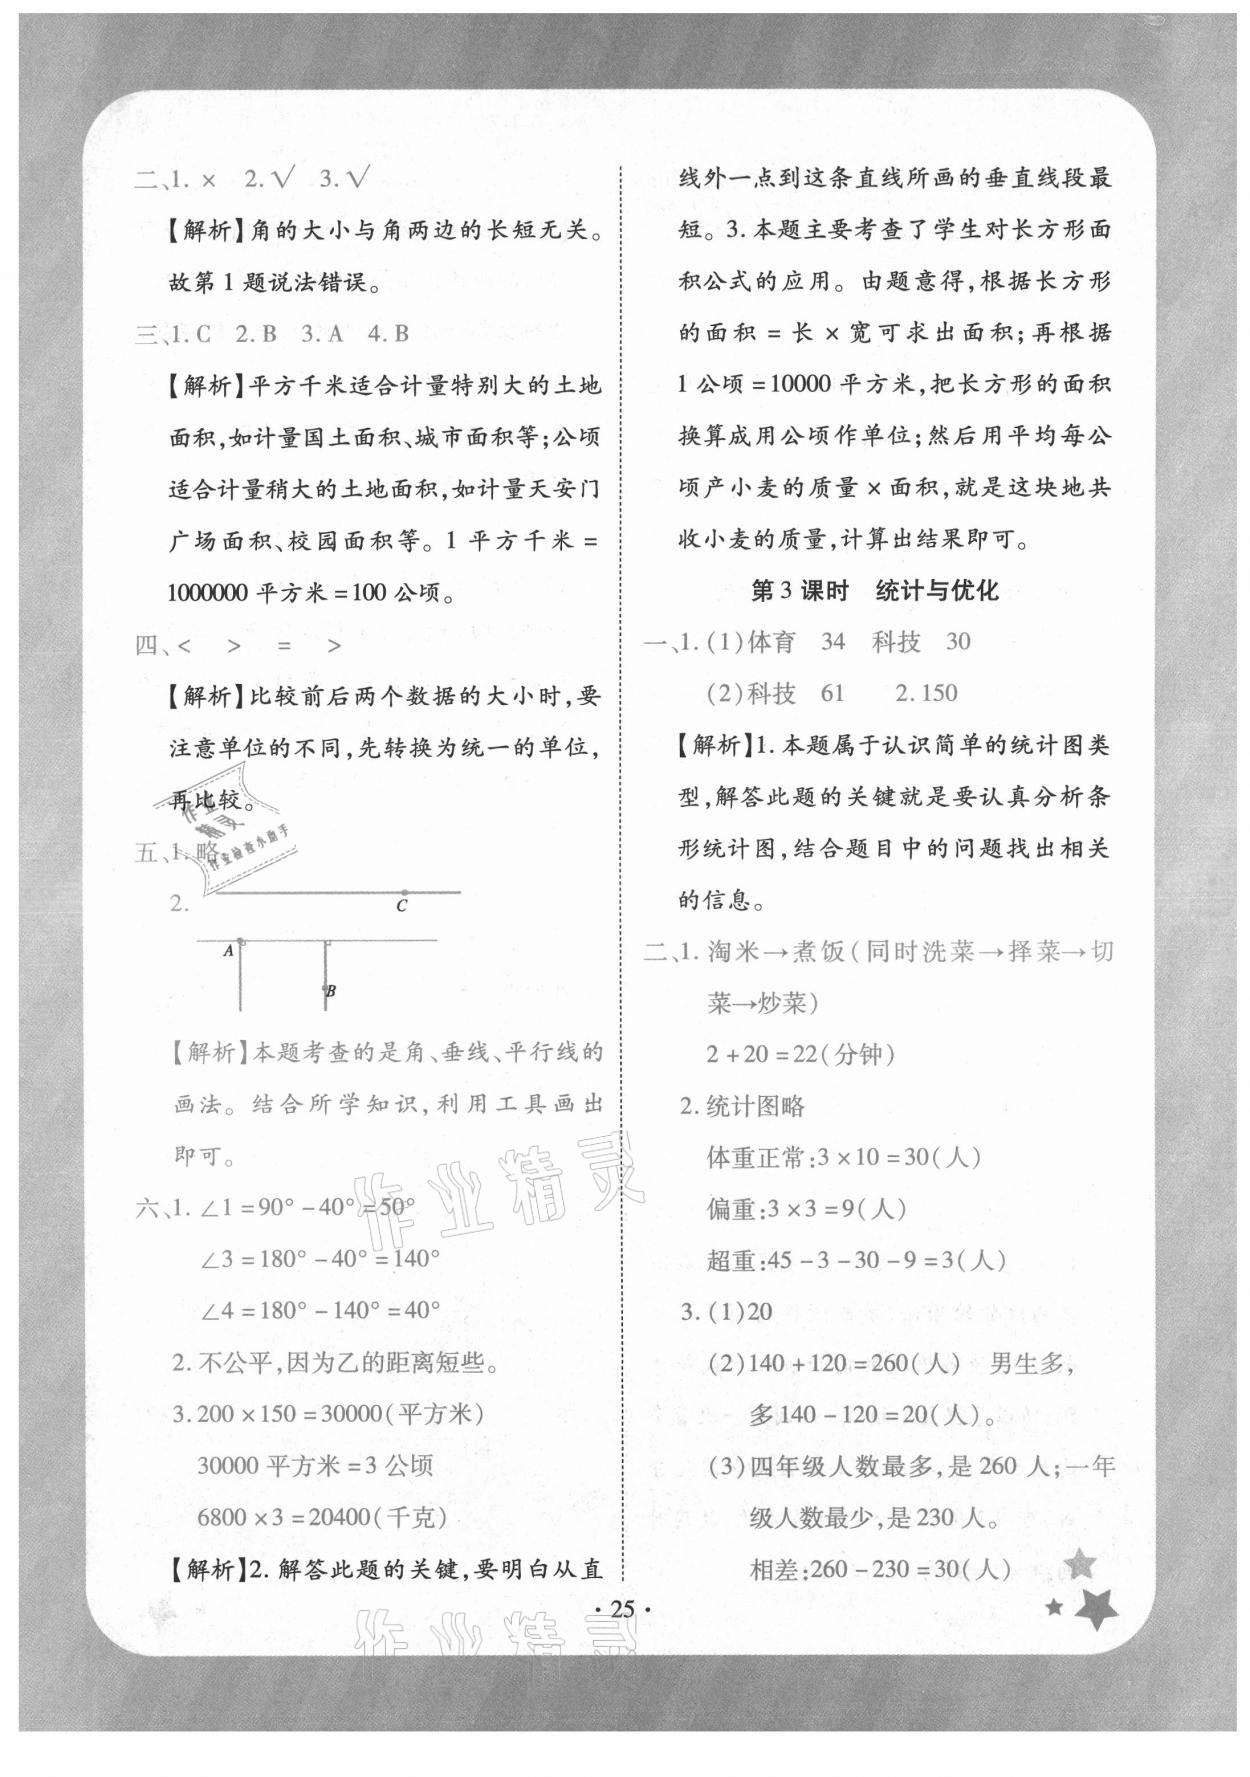 二、1. × 2.√ 3.√
【解析】角的大小与角两边的长短无关。
故第1题说法错误。
三、1.C 2.B 3.A 4.B
【解析】平方千米适合计量特别大的土地
面积,如计量国土面积、城市面积等;公顷
适合计量稍大的土地面积,如计量天安门
广场面积、校园面积等。1 平方千米 =
1000000 平方米=100 公顷。
四、< > = >
【解析】比较前后两个数据的大小时,要
注意单位的不同,先转换为统一的单位,
再比较。
作业
精灵
作业检查小助手
五、1.略
2.
C
A
B
【解析】本题考查的是角、垂线、平行线的
画法。结合所学知识,利用工具画出
即可。
六、1.∠1=90°-40°=50°
∠3=180°-40°=140°
∠4=180°-140°=40°
2.不公平,因为乙的距离短些。
3.200×150=30000(平方米)
30000 平方米=3 公顷
6800×3=20400(千克)
【解析】2.解答此题的关键,要明白从直
线外一点到这条直线所画的垂直线段最
短。3.本题主要考查了学生对长方形面
积公式的应用。由题意得,根据长方形
的面积=长×宽可求出面积;再根据
1公顷=10000 平方米,把长方形的面积
换算成用公顷作单位;然后用平均每公
顷产小麦的质量×面积,就是这块地共
收小麦的质量,计算出结果即可。
第3课时 统计与优化
一、1.(1)体育 34 科技 30
(2)科技 61 2.150
【解析】1.本题属于认识简单的统计图类
型,解答此题的关键就是要认真分析条
形统计图,结合题目中的问题找出相关
的信息。
二、1.淘米→煮饭(同时洗菜→择菜→切
菜→炒菜)
2+20=22(分钟)
2.统计图略
体重正常:3×10=30(人)
偏重:3×3=9(人)
超重:45-3-30-9=3(人)
3.(1)20
(2)140+120=260(人) 男生多,
多140-120=20(人)。
(3)四年级人数最多,是260人;一年
级人数最少,是230人。
相差:260-230=30(人)
作业精灵
·25·
作业精灵